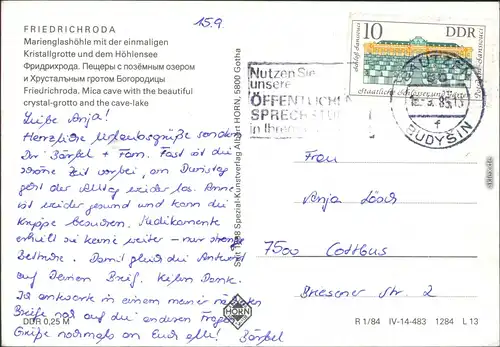 FRIEDRICHRODA
Marienglashöhle mit der einmaligen
Kristallgrotte und dem Höhlensee
Фридрихрода. Пещеры с позёмным озером
и Хрустальным гротом Богородицы
Friedrichroda. Mica cave with the beautiful
crystal-grotto and the cave-lake
15.9.
Liebe Anja!
Herzliche Urlaubsgrüße senden
Dir Bärbel + Fam. Fast ist die
schöne Zeit vorbei, am Dienstag
geht der Alltag wieder los. Anne
ist wieder gesund und kann die
Krippe besuchen. Medikamente
erhält sie keine weiter - nur strenge
Bettruhe. Damit gleich die Antwort
auf Deinen Brief. Vielen Dank.
Ich antworte in einem meiner nächsten
Briefe noch auf die anderen Fragen.
Grüße nochmals an Euch alle! Bärbel
DDR 0,25 M
Spezial-Kunstverlag Albert HORN, 5800 Gotha
HORN
10
DDR
Schloß Sanssouci
Staatliche Schlösser und Gärten
Nutzen Sie
unsere
ÖFFENTLICHEN
SPRECHSTUNDEN
in Ihrem
BAUTZEN
85.13
f
BUDYŠIN
Frau
Anja Lösch
7500 Cottbus
Briesener Str. 2
R 1/84 IV-14-483 1284 L 13